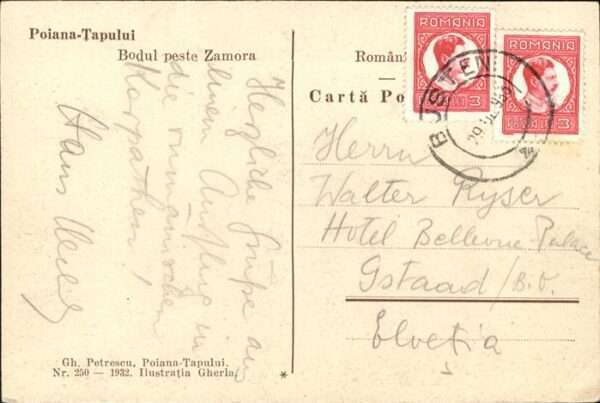 Poiana-Țapului
Bodul peste Zamora
Herzliche Grüße aus
einem Ausflug in
die rumänischen
Karpathen!
Hans
Gh. Petrescu, Poiana-Țapului.
Nr. 250 — 1932. Ilustrația Gherla.
*
Român
Cartă Po
ROMANIA
3
ROMANIA
3
BUSTENI
29
Herrn
Walter Ryser
Hotel Bellevue-Palace
Gstaad / B.O.
Elveția